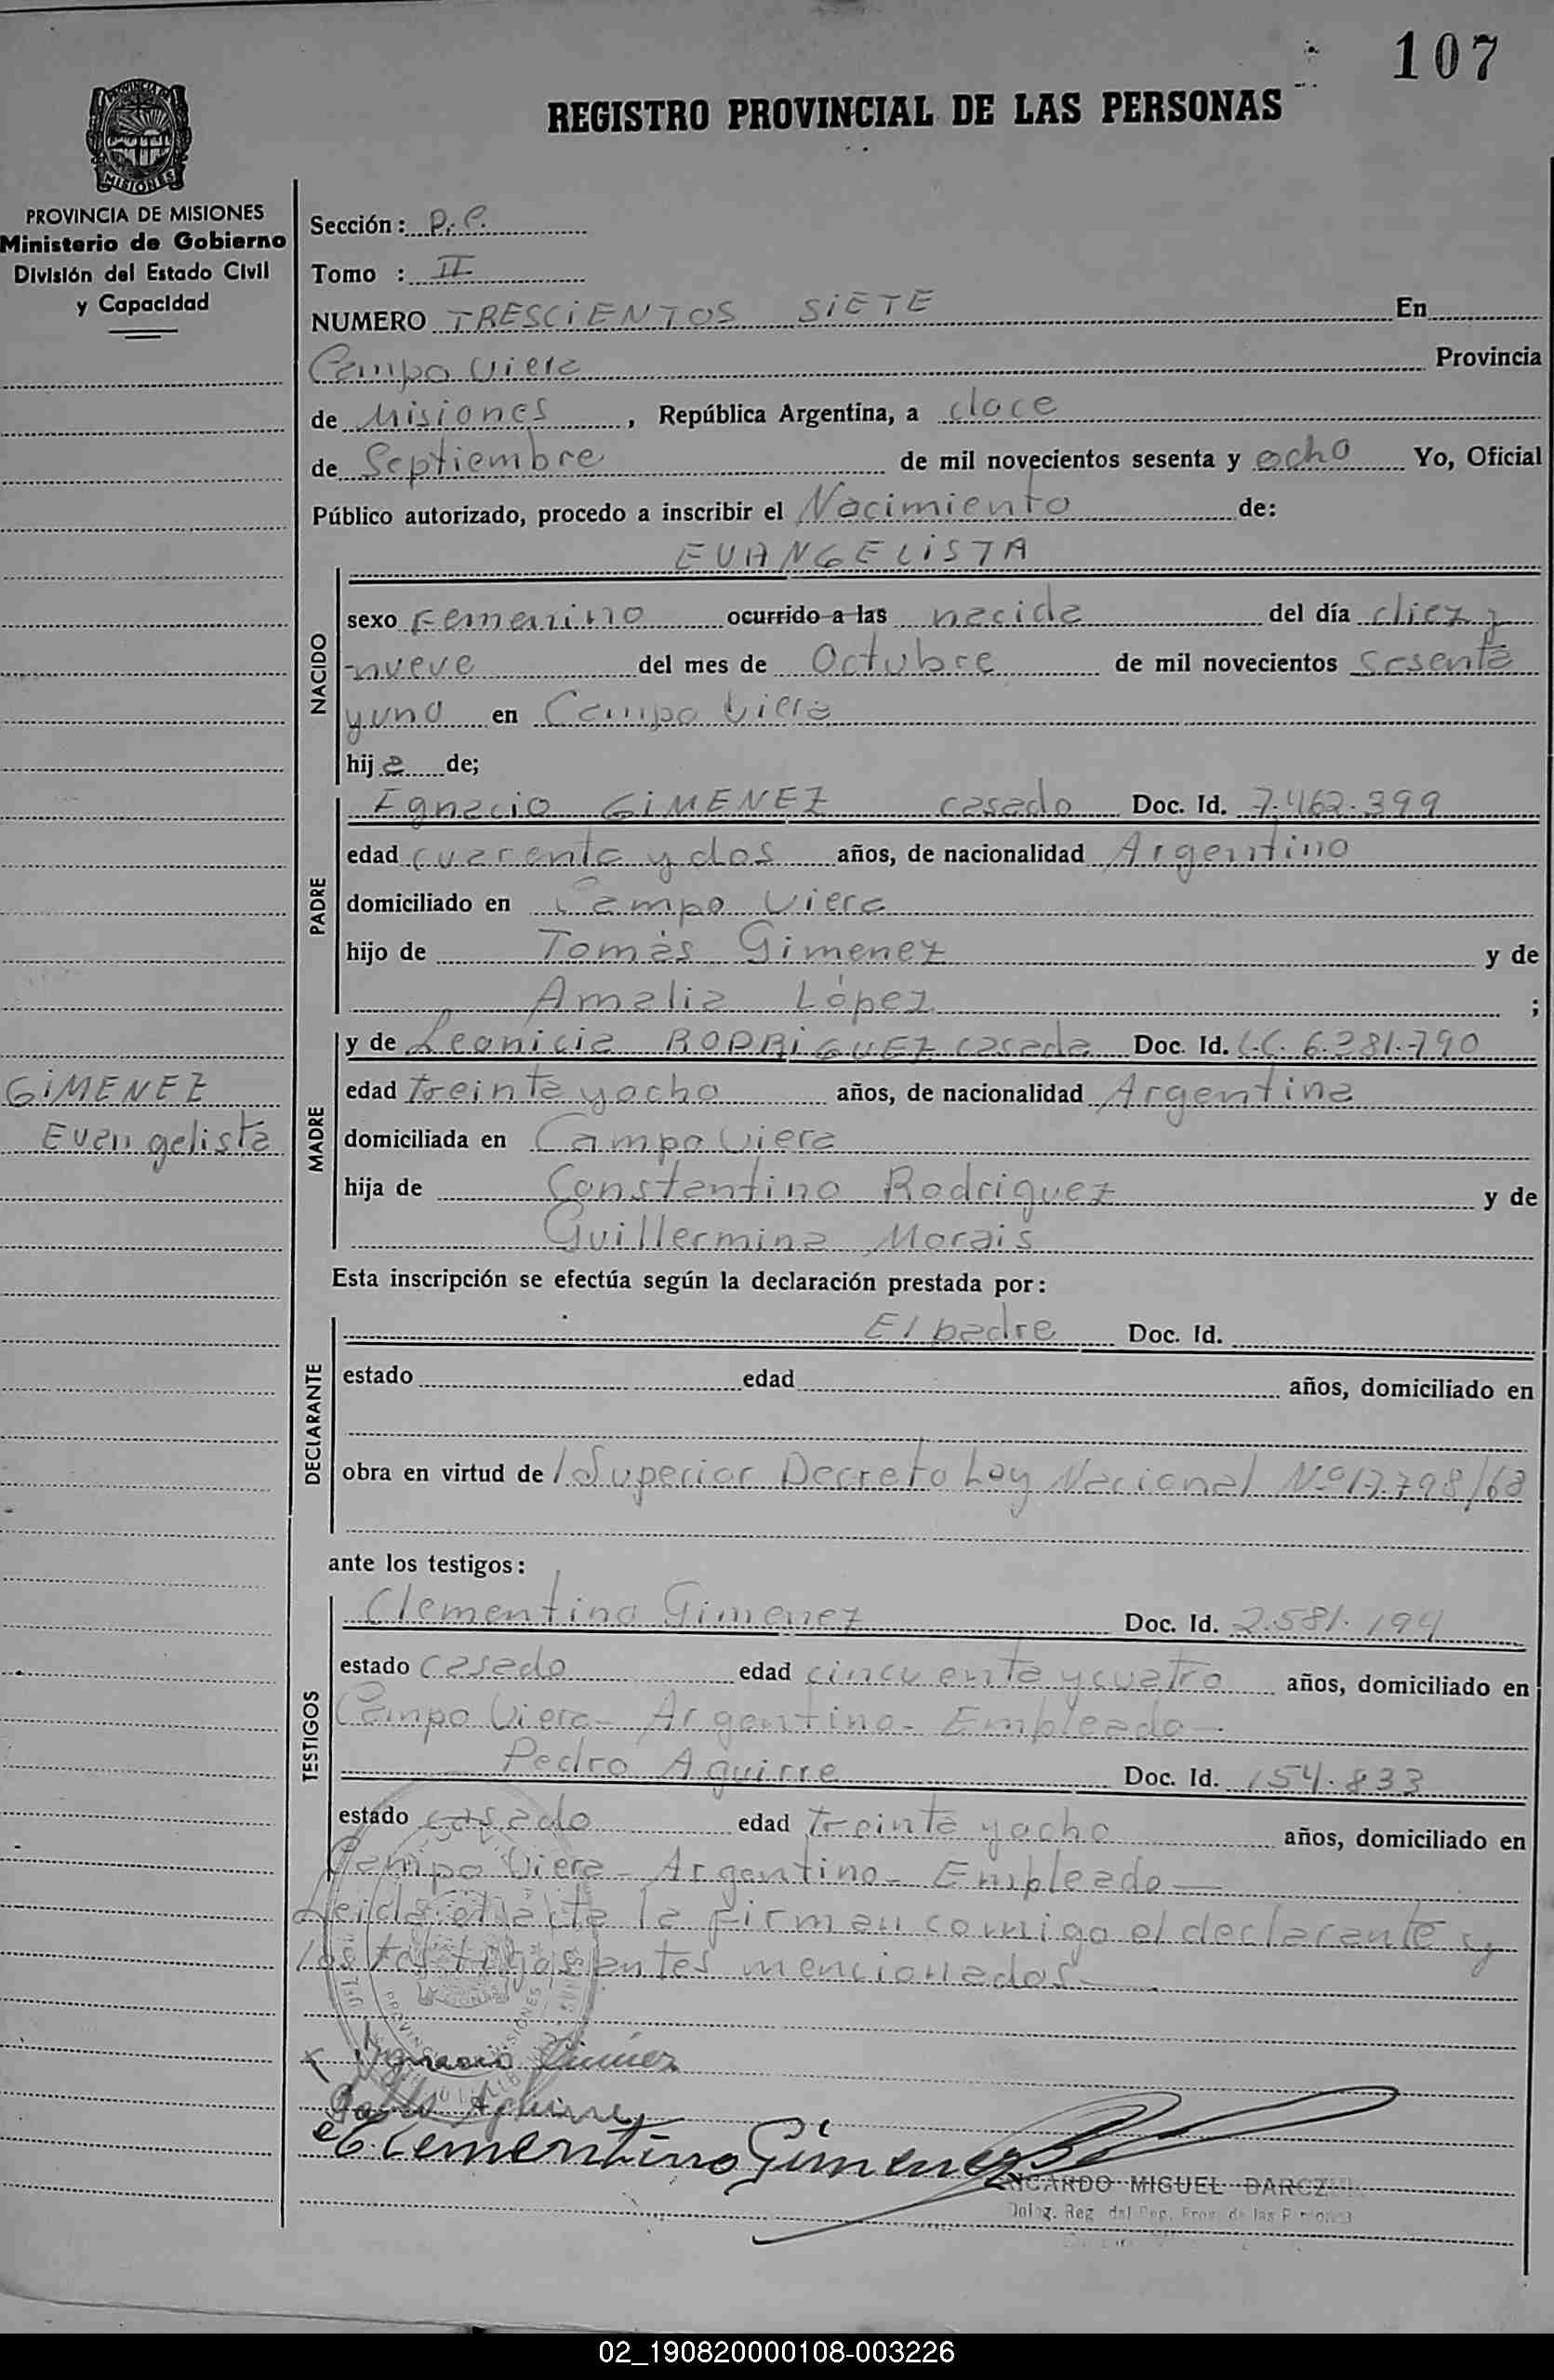 107
REGISTRO PROVINCIAL DE LAS PERSONAS
MISIONES
PROVINCIA DE MISIONES
Ministerio de Gobierno
División del Estado Civil
y Capacidad
Sección: P.C.
Tomo : II
NUMERO TRESCIENTOS SIETE En
Campo Viera Provincia
de Misiones, República Argentina, a doce
de Septiembre de mil novecientos sesenta y ocho Yo, Oficial
Público autorizado, procedo a inscribir el Nacimiento de:
EVANGELISTA
NACIDO
sexo Femenino ocurrido a las nacida del día diez y
nueve del mes de Octubre de mil novecientos sesenta
y uno en Campo Viera
hija de;
PADRE
Ignacio GIMENEZ casado Doc. Id. 7.462.399
edad cuarenta y dos años, de nacionalidad Argentino
domiciliado en Campo Viera
hijo de Tomás Gimenez y de
Amalia López ;
MADRE
y de Leonicia RODRIGUEZ casada Doc. Id. L.C. 6.281.790
edad treinta y ocho años, de nacionalidad Argentina
domiciliada en Campo Viera
hija de Constantino Rodriguez y de
Guillermina Morais
GIMENEZ
Evangelista
Esta inscripción se efectúa según la declaración prestada por:
DECLARANTE
El padre Doc. Id.
estado edad años, domiciliado en
obra en virtud del Superior Decreto Ley Nacional Nº 17.798/68
ante los testigos:
TESTIGOS
Clementino Gimenez Doc. Id. 2.581.194
estado casado edad cincuenta y cuatro años, domiciliado en
Campo Viera- Argentino- Empleado-
Pedro Aguirre Doc. Id. 154.833
estado casado edad treinta y ocho años, domiciliado en
Campo Viera- Argentino- Empleado-
Leida el acta la firman comigo el declarante y
los testigos antes mencionados-
x Ygnacio Gimenez
Aguirre
Clementino Gimenez
RICARDO MIGUEL DARCZUK
Deleg. Reg. del Reg. Prov. de las Personas
02_190820000108-003226